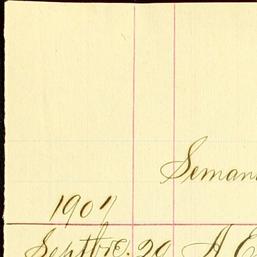 Seman
1907
Septbre. 20 A E